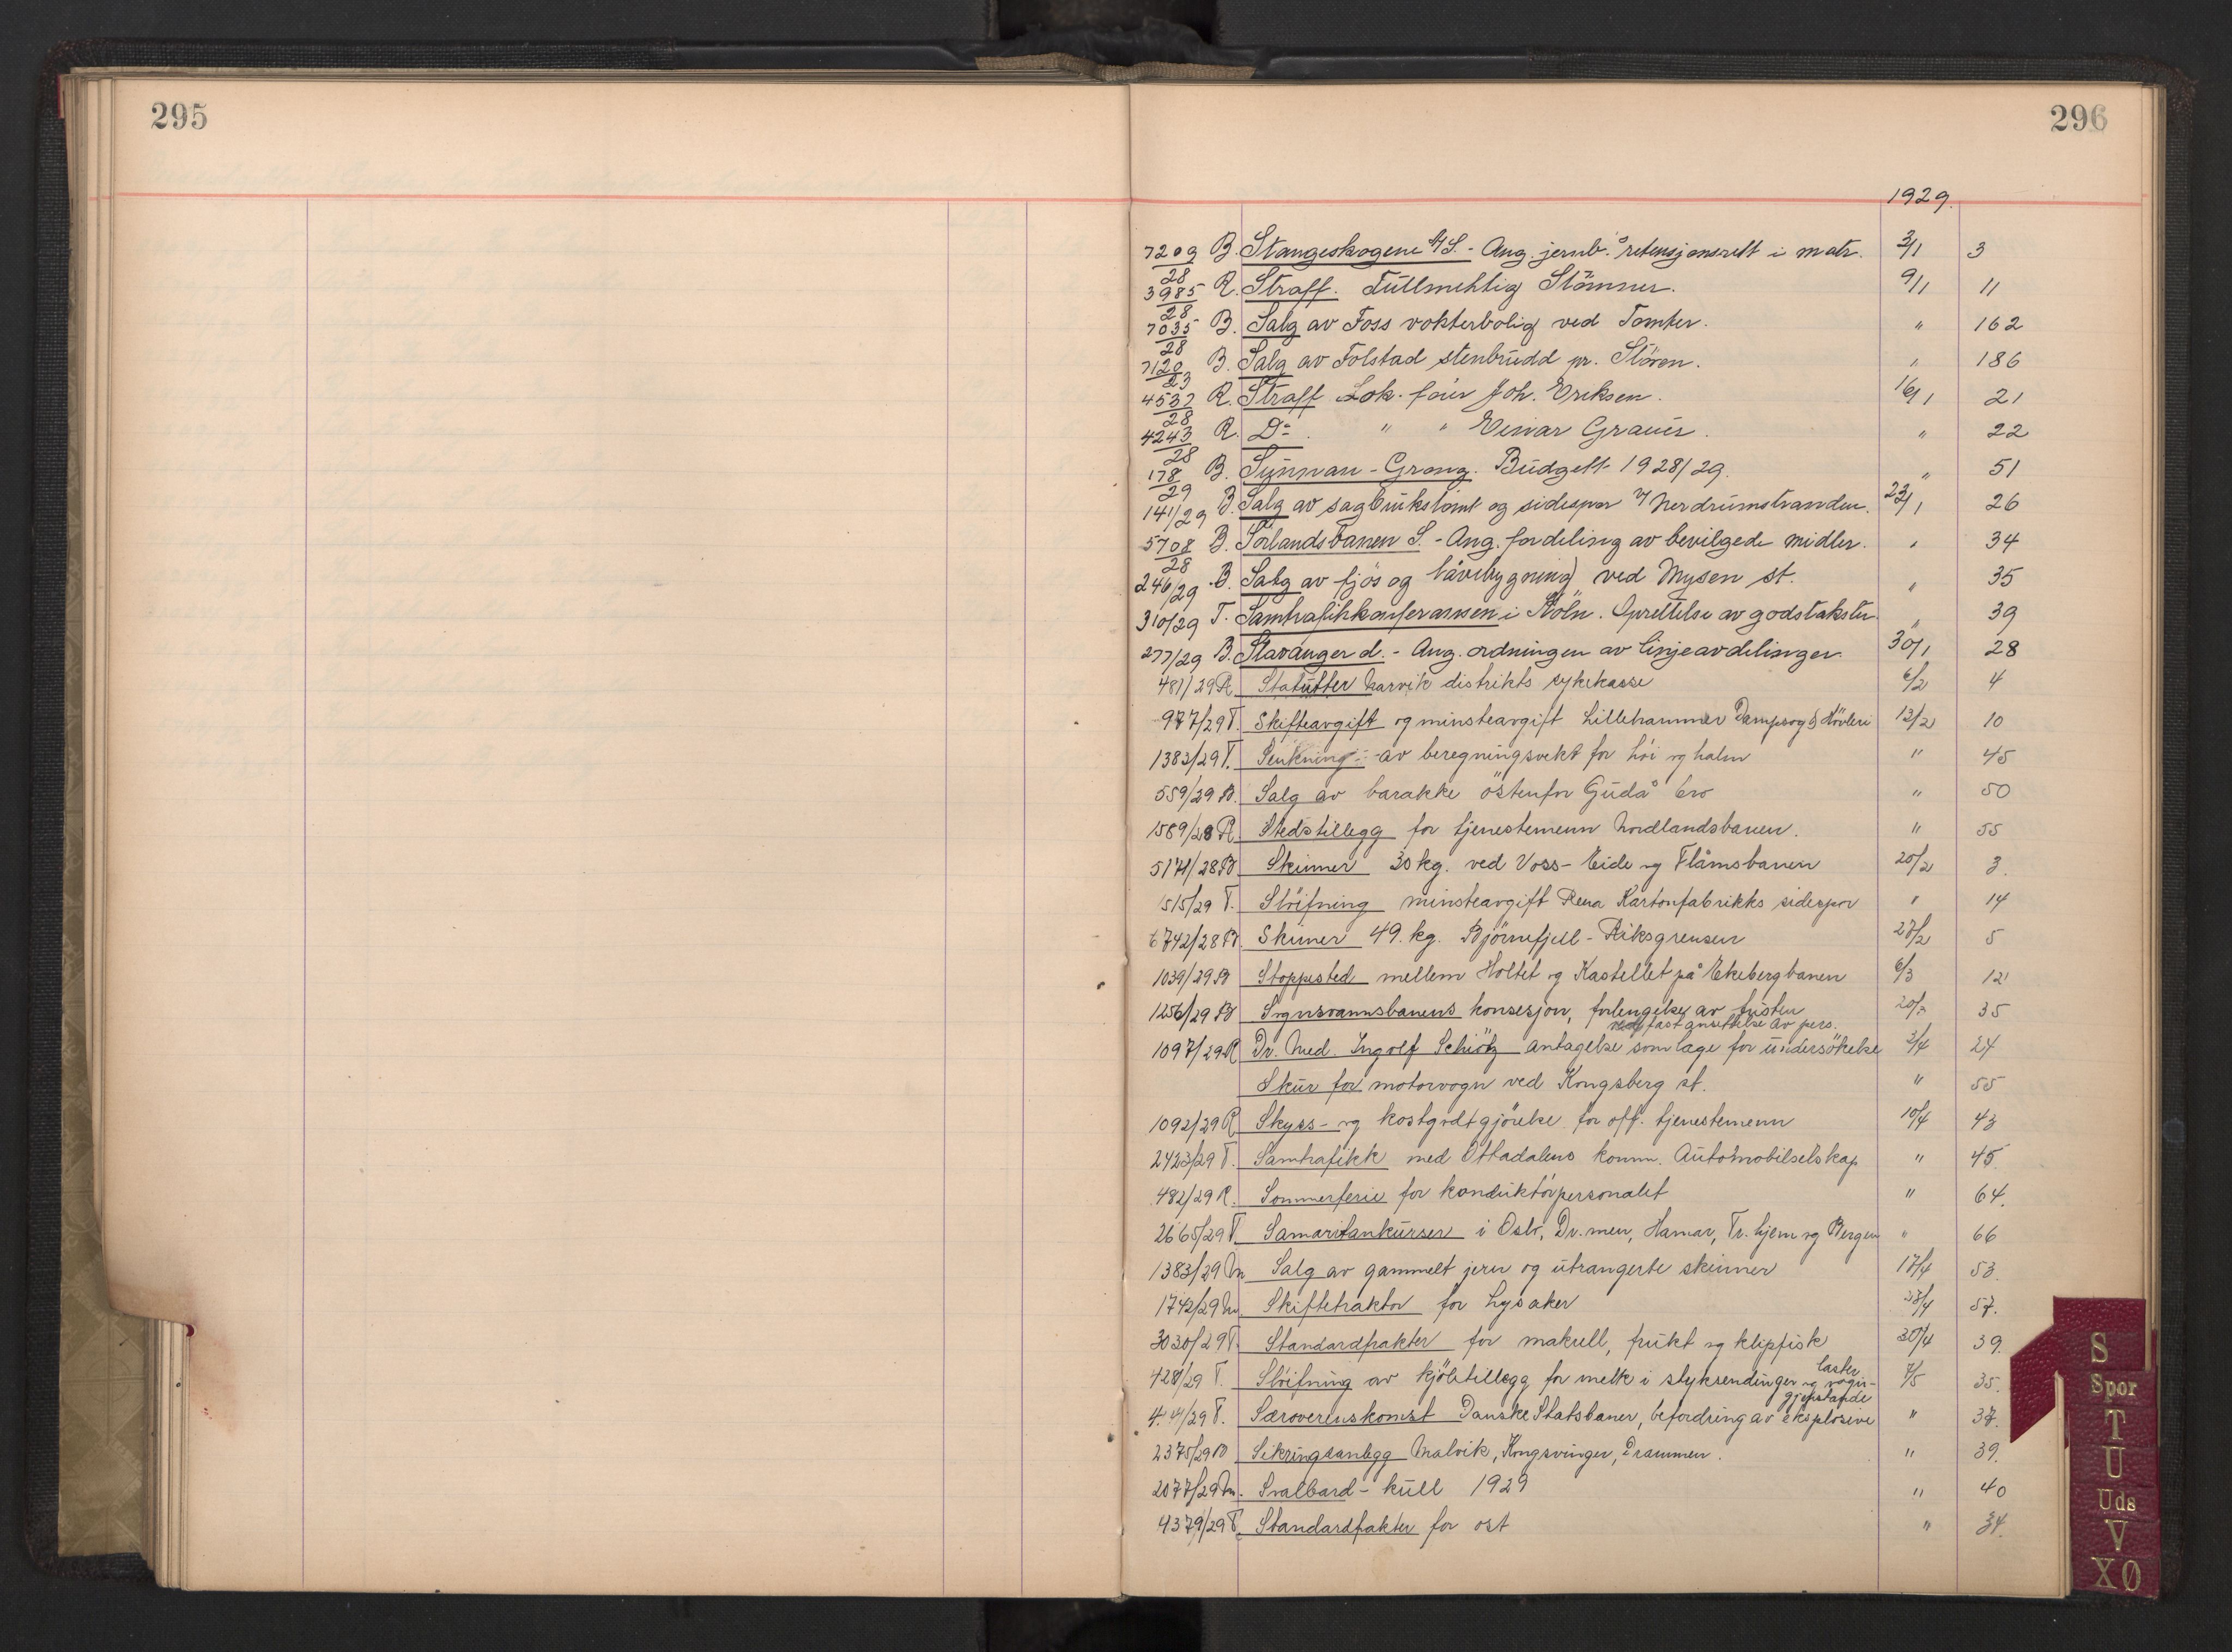 295
296
1929.
7209/28 B. Stangeskogene A/S. - Ang. jernb.s retensjonsrett i matr. 2/1 3
3985/28 R. Straff. Fullmektig Störmer. 9/1 11
7035/28 B. Salg av Foss vokterbolig ved Tomter. " 162
7120/23 B. Salg av Folstad stenbrudd pr. Stören. " 186
4532/28 R. Straff Lok. föier Joh. Eriksen. 16/1 21
4243/28 R. Do. " " Einar Grauer. " 22
178/29 B. Sunnan - Grong. Budgett 1928/29. " 51
141/29 B. Salg av sagbrukstomt og sidespor v/ Nerdrumstranden. 23/1 26
5708/28 B. Sörlandsbanen S. - Ang. fordeling av bevilgede midler. " 34
246/29 B. Salg av fjös og låvebygning ved Mysen st. " 35
310/29 T. Samtrafikkonferansen i Köln. Oprettelse av godstakster " 39
277/29 B. Stavanger d. - Ang. ordningen av linjeavdelinger. 30/1 28
481/29 R Statutter Narvik distrikts sykekasse 6/2 4
977/29 T. Skifteavgift og minsteavgift Lillehammer Dampsag & Hövleri 13/2 10
1383/29 T. Senkning - av beregningsvekt for höi og halm " 45
559/29 B. Salg av barakke östenfor Gudå bro " 50
1589/28 R Stedstillegg for tjenestemenn Nordlandsbanen. " 55
5171/28 B Skinner 30 kg. ved Voss - Eide og Flåmsbanen 20/2 3.
515/29 T. Slöifning minsteavgift Rena Kartonfabrikks sidespor " 14
6742/28 B. Skinner 49. kg. Björnefjell - Riksgrensen 27/2 5
1039/29 B Stoppested mellem Holtet og Kastellet på Ekebergbanen 6/3 12
1256/29 B Sognsvannsbanens konsesjon, forlengelse av fristen 20/3 35
ved fast ansettelse av pers.
1097/29 R Dr. Med. Ingolf Schiötz antagelse som læge for undersökelse 3/4 24
Skur for motorvogn ved Kongsberg st. " 55
1092/29 R Skyss- og kostgodtgjörelse for off. tjenestemenn 10/4 43
2423/29 T. Samtrafikk med Ottadalens komm. Automobilselskap " 45.
482/29 R. Sommerferie for konduktörpersonalet " 64.
2665/29 T. Samaritankurser i Oslo, Dr.men, Hamar, Tr.hjem og Bergen " 66
1383/29 M Salg av gammelt jern og utrangerte skinner 17/4 53.
1742/29 M. Skiftetraktor for Lysaker 57.
3030/29 T. Standardfrakter for makrell, frukt og klippfisk 30/4 39.
laster
428/29 T. Slöifning av kjöletillegg for melk i styksendinger og vogn- 7/5 35.
gjenstande
/29 T. Særoverenskomst Danske Statsbaner, befordring av eksplosive " 37.
2375/29 B Sikringsanlegg Malvik, Kongsvinger, Drammen. " 39.
2077/29 M. Svalbard - kull 1929 " 40
4379/29 T. Standardfrakter for ost " 34.
S
Spor
T
U
Uds
V
XØ